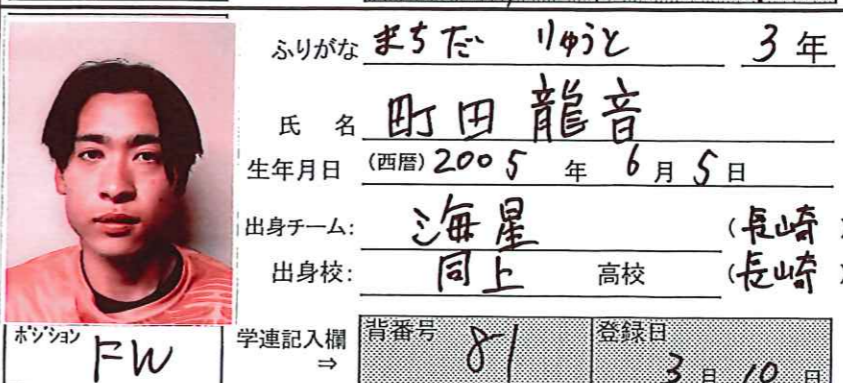 ふりがな まちだ りゅうと 3年
氏 名 町田龍音
生年月日 (西暦) 2005 年 6 月 5 日
出身チーム: 海星 (長崎)
出身校: 同上 高校 (長崎)
ポジション FW 学連記入欄 ⇒ 背番号 81 登録日 3 月 10 日